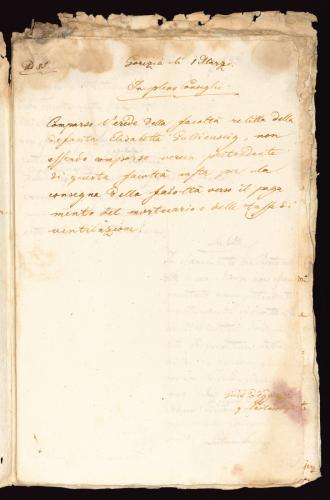 Gorizia li 1 Marzo
In pleno Consiglio
Comparso l'erede della facoltà relitta della
defonta Elisabetta non
essendo comparso verun pretendente
di questa facoltà insta per la
consegna della facoltà verso il paga
mento del mortuario e delle Tasse di
ventilazione.